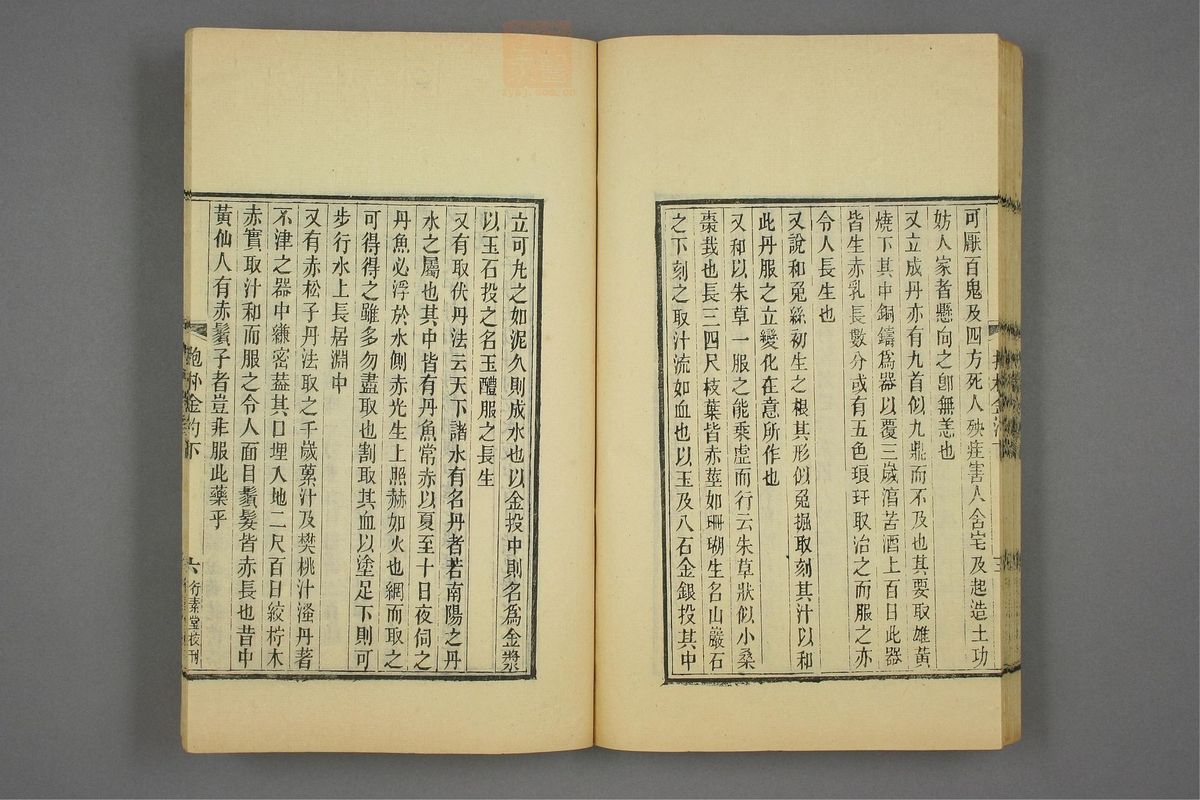 可厭百鬼及四方死人殃疰害人舍宅及起造土功
妨人家者懸向之卽無恙也
又立成丹亦有九首似九鼎而不及也其要取雄黃
燒下其中銅鑄爲器以覆三歲淳苦酒上百日此器
皆生赤乳長數分或有五色琅玕取治之而服之亦
令人長生也
又說和菟絲初生之根其形似兔掘取刻其汁以和
此丹服之立變化在意所作也
又和以朱草一服之能乘虛而行云朱草狀似小桑
棗栽也長三四尺枝葉皆赤莖如珊瑚生名山巖石
之下刻之取汁流如血也以玉及八石金銀投其中
立可丸之如泥久則成水也以金投中則名爲金漿
以玉石投之名玉醴服之長生
又有取伏丹法云天下諸水有名丹者若南陽之丹
水之屬也其中皆有丹魚常赤以夏至十日夜伺之
丹魚必浮於水側赤光生上照赫如火也網而取之
可得得之雖多勿盡取也割取其血以塗足下則可
步行水上長居淵中
又有赤松子丹法取之千歲蔂汁及樊桃汁淹丹著
不津之器中練密蓋其口埋入地二尺百日絞檸木
赤實取汁和而服之令人面目鬚髮皆赤長也昔中
黃仙人有赤鬚子者豈非服此藥乎
抱朴金汋下
六
行素堂校刊